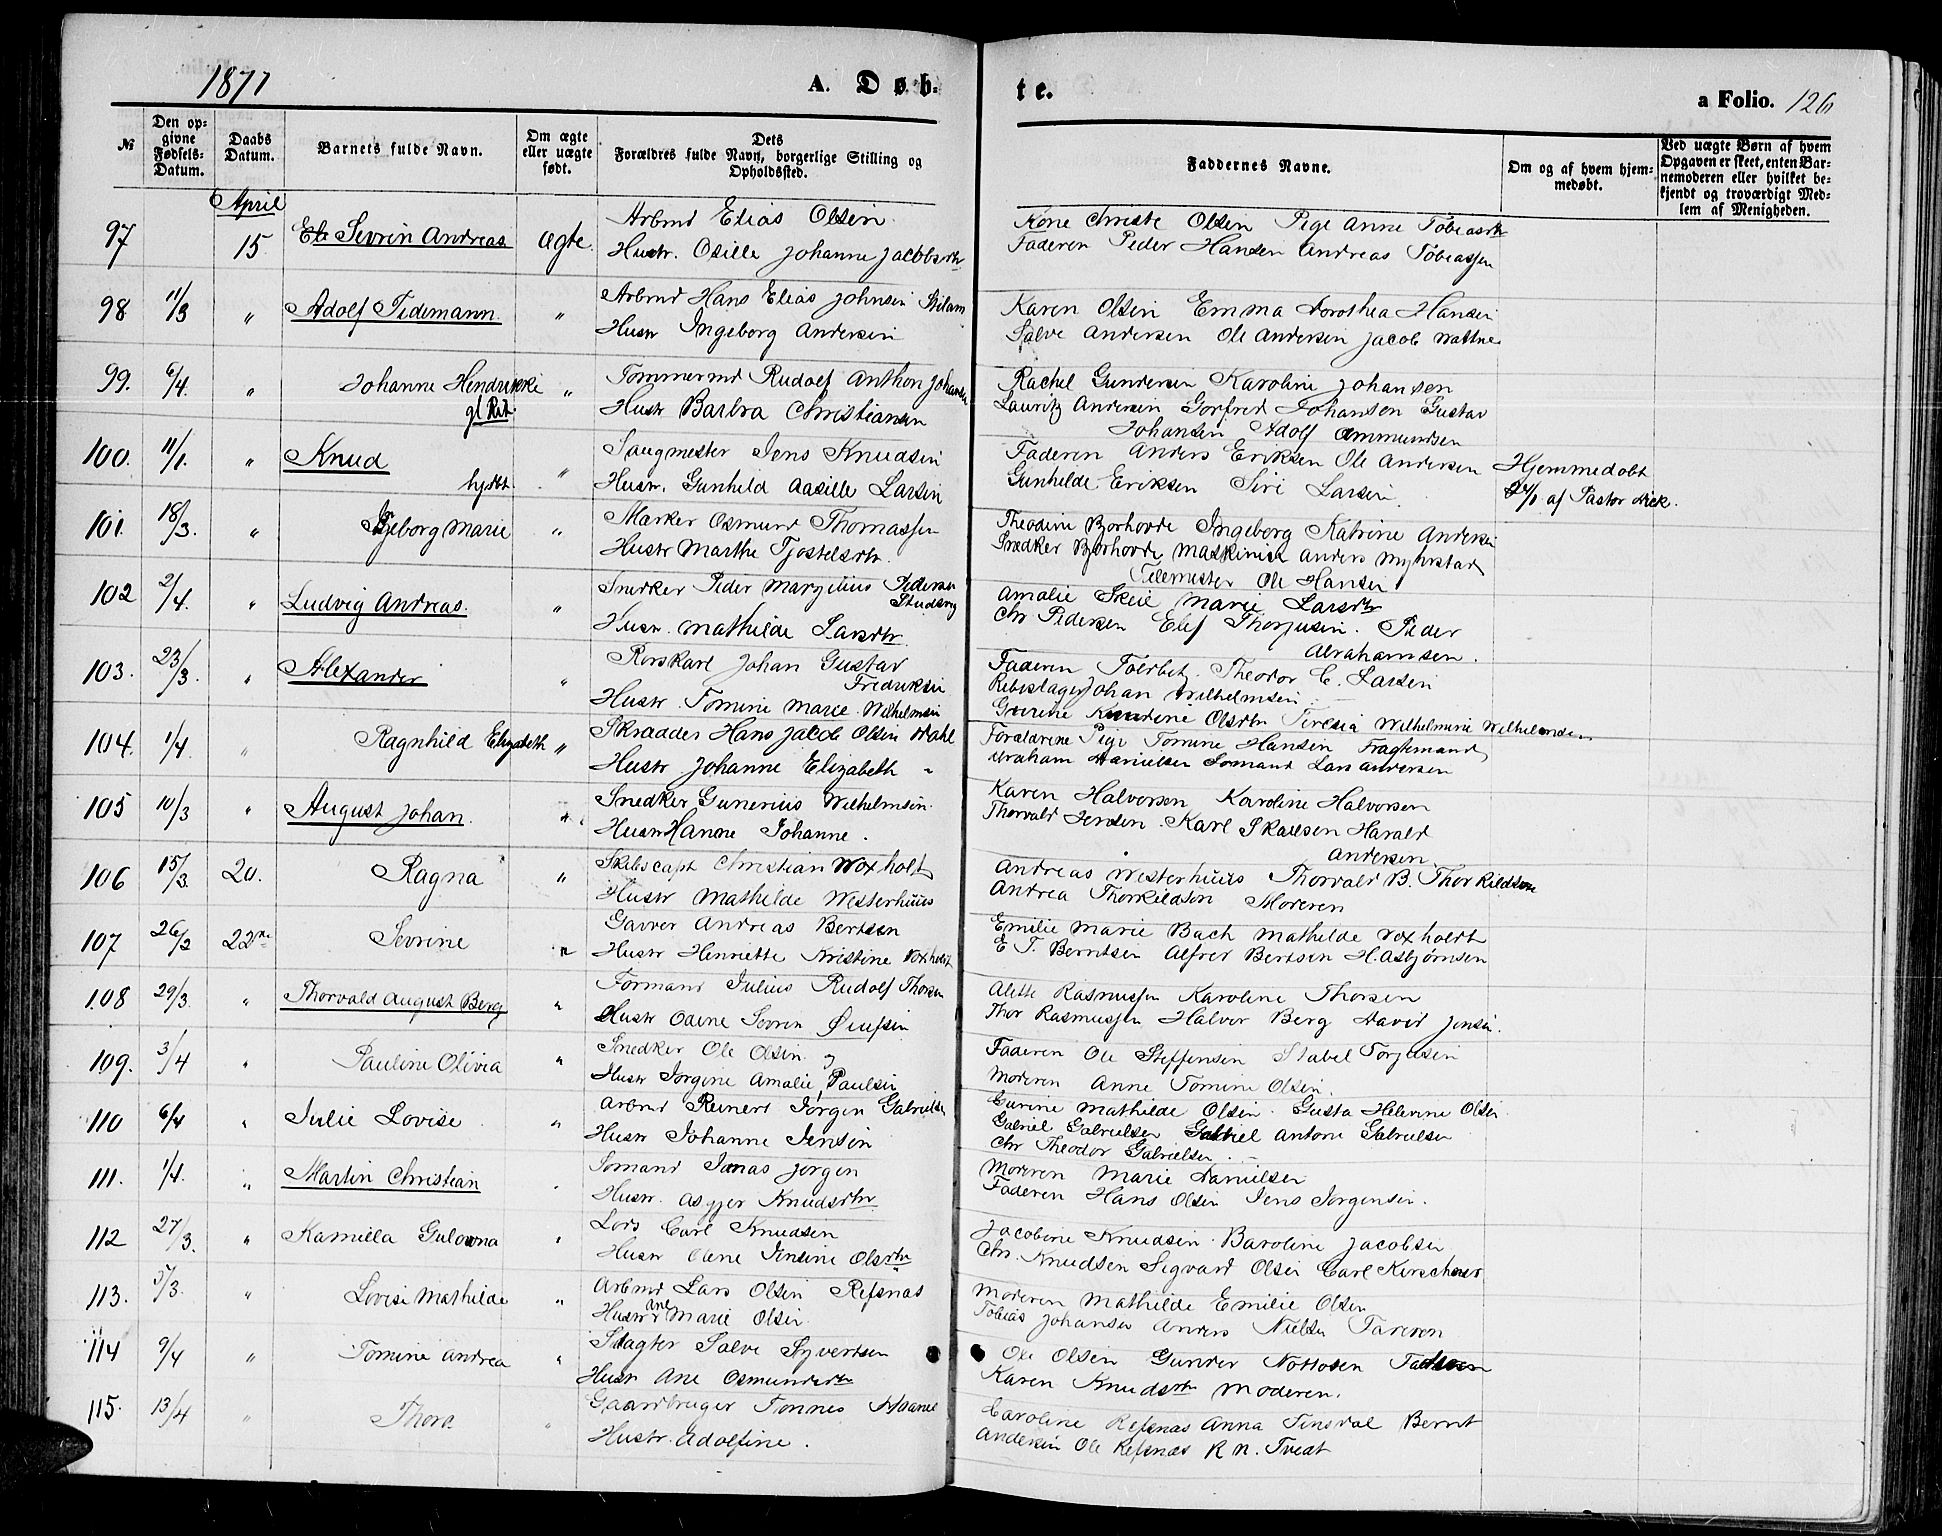 1871 A. Døb- te. a Folio. 126
№ Den opgivne Fødsels-Datum. Daabs Datum. Barnets fulde Navn. Om ægte eller uægte født. Dets Forældres fulde Navn, borgerlige Stilling og Opholdssted. Faddernes Navne. Om og af hvem hjemmedøbt. Ved uægte Børn af hvem Opgaven er skeet, enten Barnemoderen eller hvilket bekjendt og troværdigt Medlem af Menigheden.
April
97 15 Sevrin Andreas ægte. Arbmd Elias Olsen Kone Christe Olsen Pige Anne Tobiasdtr
Hustr. Osille Johanne Jacobsdtr Faderen Peder Hansen Andreas Tobiassen
98 11/3 " Adolf Tidemann. " Arbmd Hans Elias Johnsen Karen Olsen Emma Dorothea Hansen
Hustr Ingeborg Andersen Salve Andersen Ole Andersen Jacob
99. 6/4. " Johanne Hendrikke " Tømmermd Rudolf Anthon Johansen Rachel Gundersen Karoline Johansen
Hustr Barbra Christiansen Lauritz Andersen Gorfred Johansen Gustav
Johansen Adolf Ommundsen
100. 11/1. " Knud " Saugmester Jens Knudsen Faderen Anders Eriksen Ole Andersen Hjemmedøbt
hjdbt. Hustr. Gunhild Aasille Larsen Gunhilde Eriksen Siri Larsen af Pastor
101. 18/3. " Marie " Marker Osmund Thomassen Theodine Bjorhovde Ingeborg Katrine Andersen
Hustr Marthe Tjostelsdtr. Snedker Bjorhovde Maskinist Anders
Ole Hansen
102 2/4. " Ludvig Andreas. " Snedker Peder Pedersen Amalie Skeie Marie Larsdtr
Hustr. Mathilde Larsdtr. Chr Pedersen Elef Thorjusen. Peder
Abrahamsen.
103. 23/3. " Alexander " Rorskarl Johan Gustav Faderen Theodor E. Larsen
Fredriksen Johan Wilhelmsen
Hustr. Tomine Marie Wilhelmsen
104. 1/4. " Ragnhild Elizabeth " Skrædder Hans Jacob Olsen Dahl Forældrene Pige Tomine Hansen Fragtemand
Hustr Johanne Elizabeth " Abraham Danielsen Sømand Lars Andersen
105 10/3 " August Johan. " Snedker Gunerius Wilhelmsen. Karen Halvorsen Karoline Halvorsen
Hustr Hanne Johanne. Thorvald Jensen. Karl Harald
Andersen
106 15/3. 20. Ragna " Skibscapt Christian Voxholt Andreas Westerhuus Thorvald B. Thorkildsen
Hustr Mathilde Westerhuus Andrea Thorkildsen Moderen
107 26/2 22 Sevrine " Garver Andreas Berntsen Emilie Marie Bach Mathilde Voxholdt
Hustr Henriette Kristine Voxholdt E T. Berntsen Alfred Bertsen H. Asbjørnsen
108 29/3. " Thorvald August Berg " Formand Julius Rudolf Thorsen Alette Rasmussen Karoline Thorsen
Hustr Odine Sevrin Thor Rasmussen Halvor Berg David Jensen.
109. 3/4 " Pauline Olivia " Snedker Ole Olsen Faderen Ole Steffensen Torjusen
Hustr Jorgine Amalie Paulsen Moderen Anne Tomine Olsen.
110 6/4 " Julie Lovise " Arbmd Reinert Jørgen Gabrielsen Gurine Mathilde Olsen. Gusta Helenne Olsen
Hustr Johanne Jensen Gabriel Gabrielsen Gabriel Antoni Gabrielsen
Chr Theodor Gabrielsen
111. 1/4. " Martin Christian Sømand Jonas Jorgen Moderen Marie Danielsen
Hustr. Asgjer Knudsdtr Faderen Hans Olsen Jens Jorgensen.
112 27/3. " Kamilla " Lods Carl Knudsen Jacobine Knudsen. Baroline Jacobsen
Hustr Olene Jensine Olsdtr Chr. Knudsen Sigvard Olsen Carl
113. /3. " Lovise Mathilde " Arbmd Lars Olsen Refsnæs Moderen Mathilde Emilie Olsen
Hustr Ane Marie Olsen Tobias Johansen Anders Nielsen Faderen
114 9/4 " Tomine Andrea " Slagter Salve Syvertsen Ole Olsen Gunder Faderen
Hustr Ane Osmundsdtr Karen Knudsdtr Moderen.
115. 13/4 " Thora " Gaardbruger Tonnes Haanes Caroline Refsnæs Anna Bernt
Hustr. Adolfine. Andersen Ole Refsnæs R N. Tveit